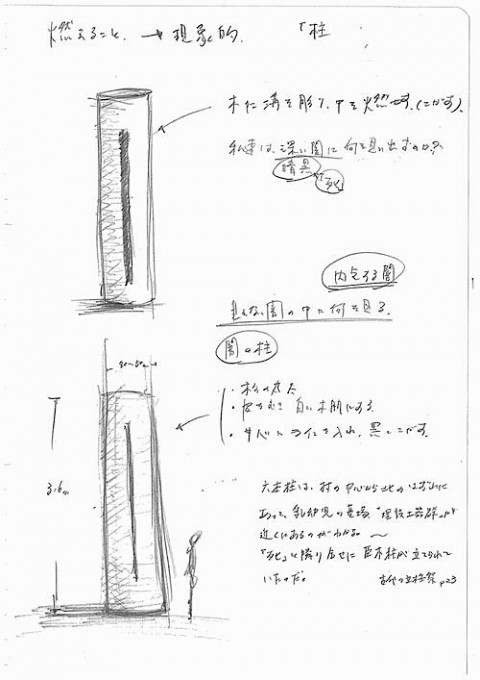 燃えること。→ 現象的。 「柱」
木に溝を彫り、中を燃やす。(こがす)。
私達は、深い闇に何を見い出すのか?
暗黒
「死」
内包する闇
見えない闇の中に何を見る。
闇の柱
90~80cm
・杉の丸太
・皮をむき 白い木肌にする
・サイドにラインを入れ、黒くこがす。
3.6m
六本柱は、村の中心から北のはずれに
あって、乳幼児の墓場 "埋設土器群"が
近くにあるのがわかる。~
「死」と隣り合せに巨木柱が立てられて
いたのだ。
古代の立柱祭 p23